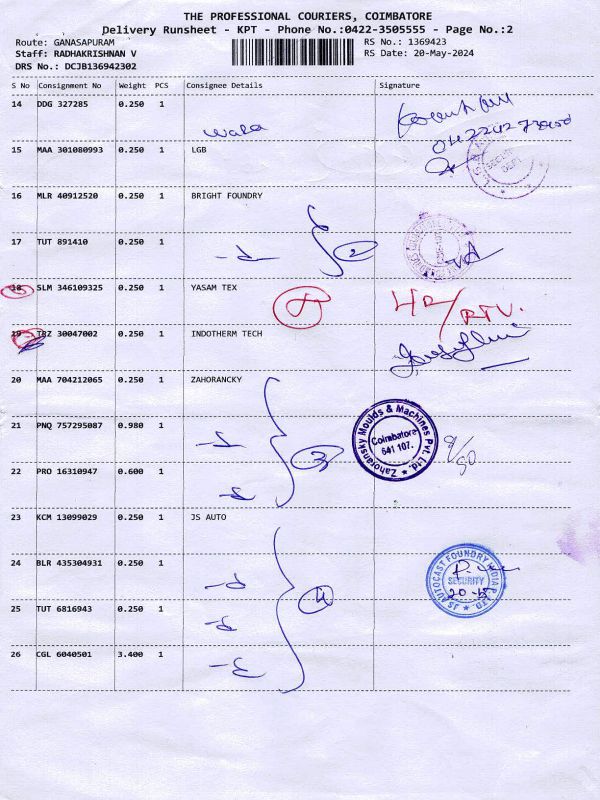 THE PROFESSIONAL COURIERS, COIMBATORE
Delivery Runsheet - KPT - Phone No.:0422-3505555 - Page No.:2
Route: GANASAPURAM RS No.: 1369423
Staff: RADHAKRISHNAN V RS Date: 20-May-2024
DRS No.: DCJB136942302
S No Consignment No Weight PCS Consignee Details Signature
14 DDG 327285 0.250 1
15 MAA 301080993 0.250 1 LGB
16 MLR 40912520 0.250 1 BRIGHT FOUNDRY
17 TUT 891410 0.250 1 2
18 SLM 346109325 0.250 1 YASAM TEX
19 30047002 0.250 1 INDOTHERM TECH
20 MAA 704212065 0.250 1 ZAHORANCKY
21 PNQ 757295087 0.980 1 3
Zahoransky Moulds & Machines Pvt. Ltd.
Coimbatore
641 107.
22 PRO 16310947 0.600 1
23 KCM 13099029 0.250 1 JS AUTO
24 BLR 435304931 0.250 1
JS AUTOCAST FOUNDRY INDIA P.LTD.
SECURITY
25 TUT 6816943 0.250 1 4
26 CGL 6040501 3.400 1